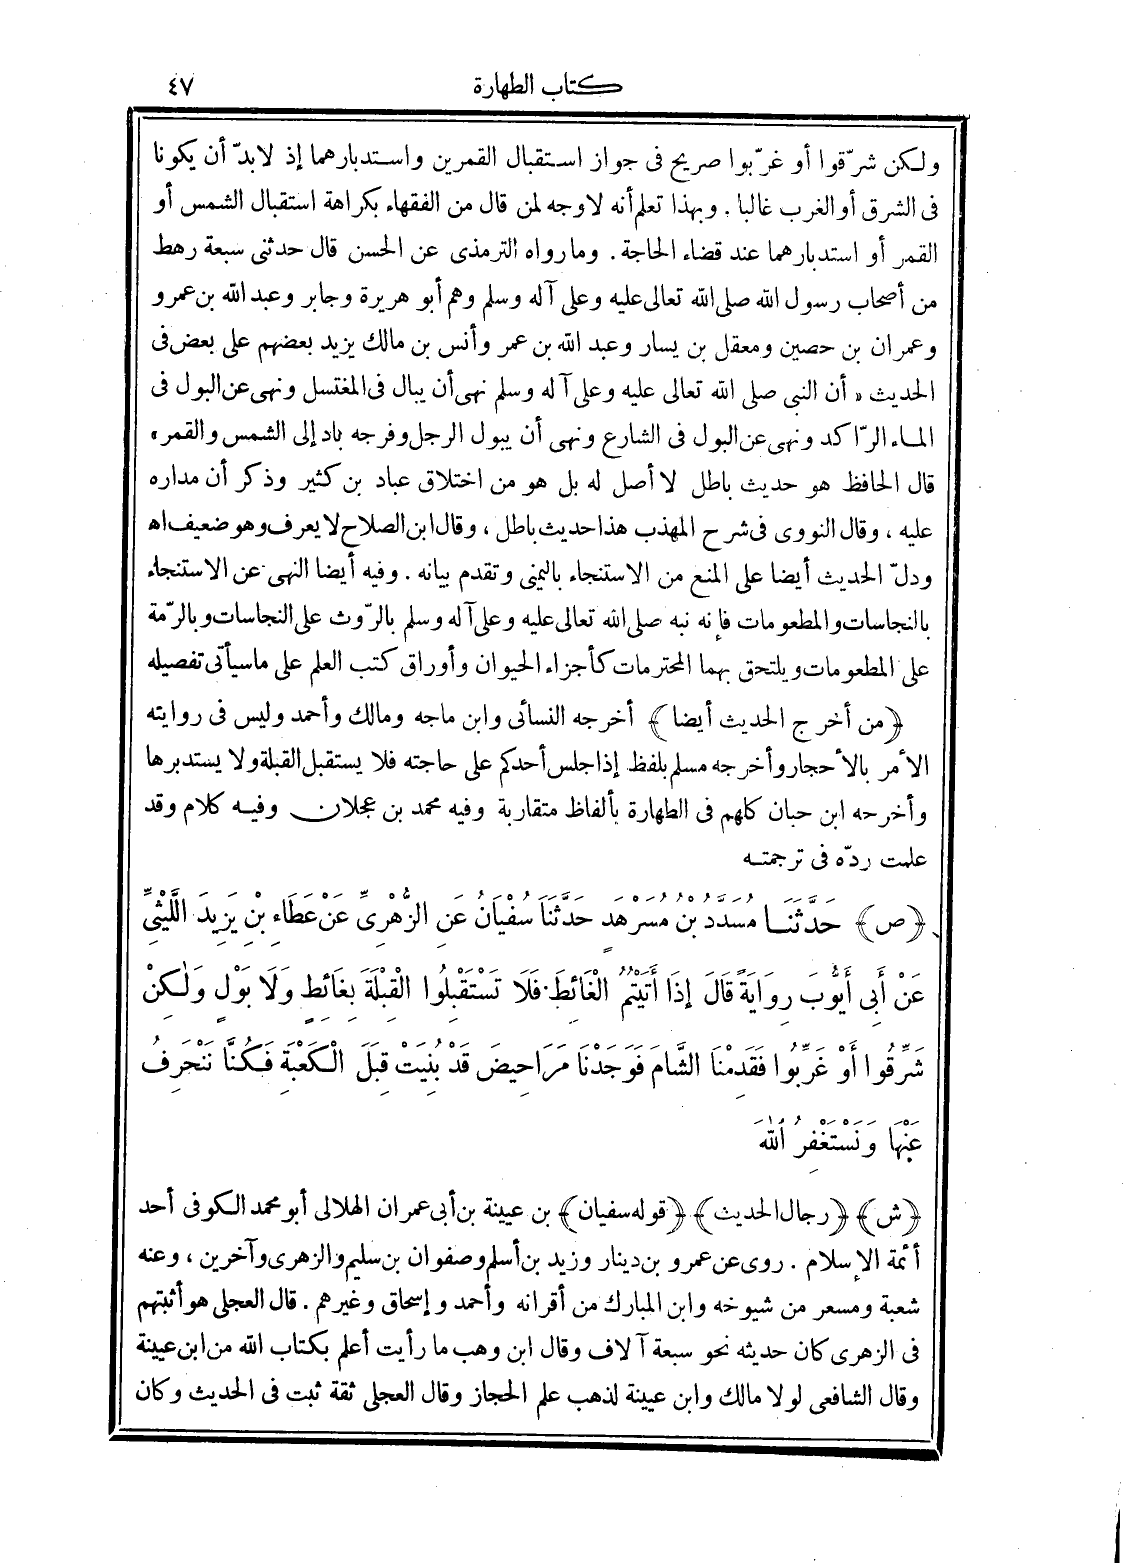 كتاب الطهارة ٤٧
ولكن شرّقوا أو غرّبوا صريح فى جواز استقبال القمرين واستدبارهما إذ لابدّ أن يكونا
فى الشرق أو الغرب غالبا . وبهذا تعلم أنه لاوجه لمن قال من الفقهاء بكراهة استقبال الشمس أو
القمر أو استدبارهما عند قضاء الحاجة . ومارواه الترمذى عن الحسن قال حدثنى سبعة رهط
من أصحاب رسول الله صلى الله تعالى عليه وعلى آله وسلم وهم أبو هريرة وجابر وعبد الله بن عمرو
وعمران بن حصين ومعقل بن يسار وعبد الله بن عمر وأنس بن مالك يزيد بعضهم على بعض فى
الحديث « أن النبى صلى الله تعالى عليه وعلى آله وسلم نهى أن يبال فى المغتسل ونهى عن البول فى
الماء الرّاكد ونهى عن البول فى الشارع ونهى أن يبول الرجل وفرجه باد إلى الشمس والقمر »
قال الحافظ هو حديث باطل لا أصل له بل هو من اختلاق عباد بن كثير وذكر أن مداره
عليه ، وقال النووى فى شرح المهذب هذا حديث باطل ، وقال ابن الصلاح لا يعرف وهو ضعيف اه
ودلّ الحديث أيضا على المنع من الاستنجاء باليمنى وتقدم بيانه . وفيه أيضا النهى عن الاستنجاء
بالنجاسات والمطعومات فإنه نبه صلى الله تعالى عليه وعلى آله وسلم بالرّوث على النجاسات وبالرّمة
على المطعومات ويلتحق بهما المحترمات كأجزاء الحيوان وأوراق كتب العلم على ماسيأتى تفصيله
﴿من أخرج الحديث أيضا﴾ أخرجه النسائى وابن ماجه ومالك وأحمد وليس فى روايته
الأمر بالأحجار وأخرجه مسلم بلفظ إذا جلس أحدكم على حاجته فلا يستقبل القبلة ولا يستدبرها
وأخرجه ابن حبان كلهم فى الطهارة بألفاظ متقاربة وفيه محمد بن عجلان وفيه كلام وقد
علمت ردّه فى ترجمته
﴿ص﴾ حَدَّثَنَا مُسَدَّدُ بْنُ مُسَرْهَدٍ حَدَّثَنَا سُفْيَانُ عَنِ الزُّهْرِىِّ عَنْ عَطَاءِ بْنِ يَزِيدَ اللَّيْثِىِّ
عَنْ أَبِى أَيُّوبَ رِوَايَةً قَالَ إِذَا أَتَيْتُمُ الْغَائِطَ فَلَا تَسْتَقْبِلُوا الْقِبْلَةَ بِغَائِطٍ وَلَا بَوْلٍ وَلٰكِنْ
شَرِّقُوا أَوْ غَرِّبُوا فَقَدِمْنَا الشَّامَ فَوَجَدْنَا مَرَاحِيضَ قَدْ بُنِيَتْ قِبَلَ الْكَعْبَةِ فَكُنَّا نَنْحَرِفُ
عَنْهَا وَنَسْتَغْفِرُ اللهَ
﴿ش﴾ ﴿رجال الحديث﴾ ﴿قوله سفيان﴾ بن عيينة بن أبى عمران الهلالى أبو محمد الكوفى أحد
أئمة الإسلام . روى عن عمرو بن دينار وزيد بن أسلم وصفوان بن سليم والزهرى وآخرين ، وعنه
شعبة ومسعر من شيوخه وابن المبارك من أقرانه وأحمد وإسحاق وغيرهم . قال العجلى هو أثبتهم
فى الزهرى كان حديثه نحو سبعة آلاف وقال ابن وهب ما رأيت أعلم بكتاب الله من ابن عيينة
وقال الشافعى لولا مالك وابن عيينة لذهب علم الحجاز وقال العجلى ثقة ثبت فى الحديث وكان